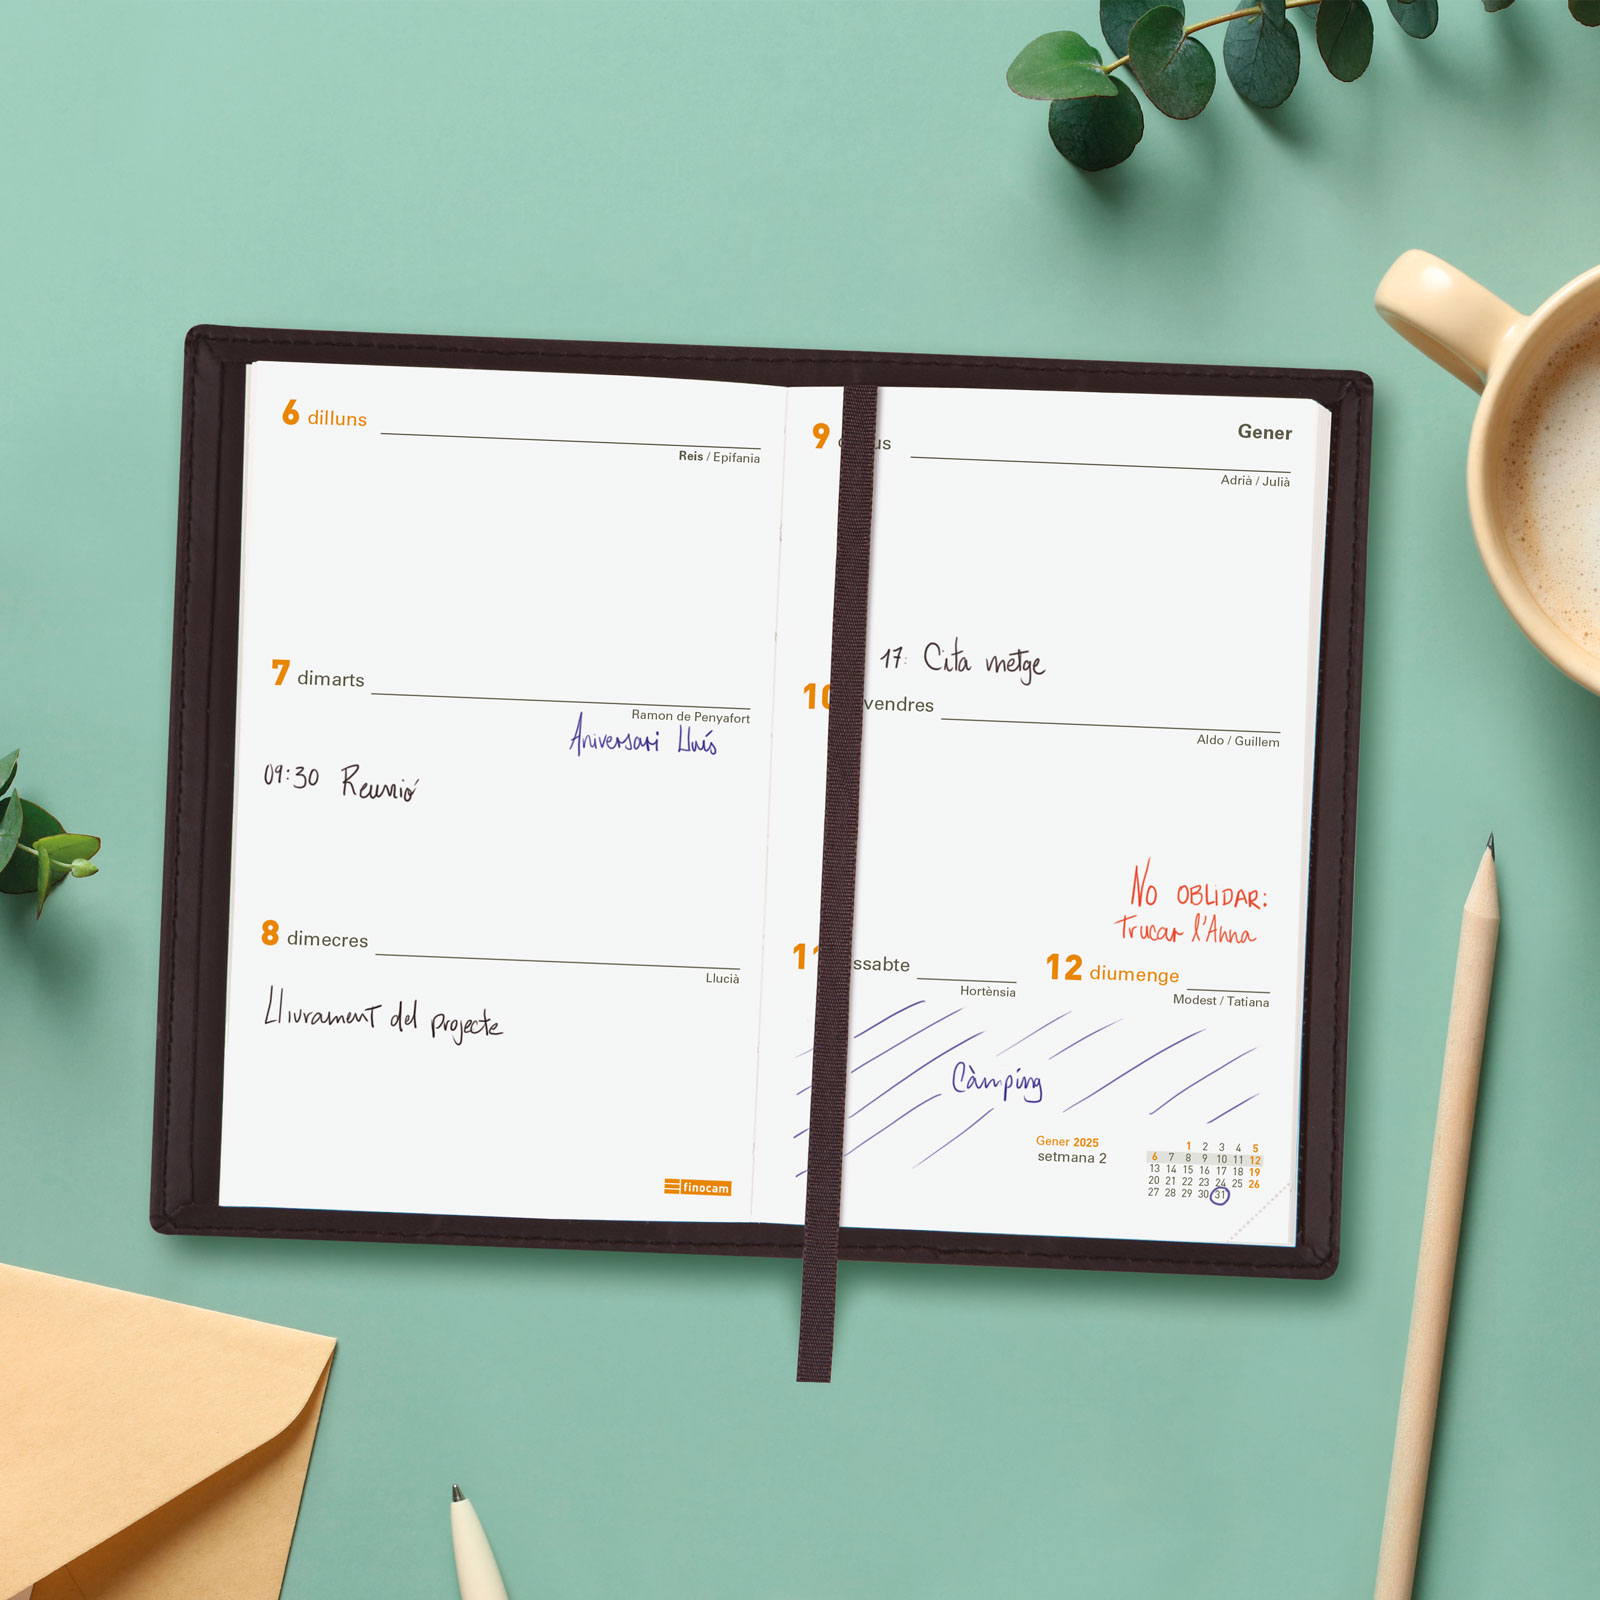 6 dilluns
Reis / Epifania
7 dimarts
Ramon de Penyafort
Aniversari Lluís
09:30 Reunió
8 dimecres
Llucià
Lliurament del projecte
finocam
Gener
9
Adrià / Julià
17: Cita metge
10 vendres
Aldo / Guillem
NO OBLIDAR:
Trucar l'Anna
11 ssabte
Hortènsia
12 diumenge
Modest / Tatiana
Càmping
Gener 2025
setmana 2
1 2 3 4 5
6 7 8 9 10 11 12
13 14 15 16 17 18 19
20 21 22 23 24 25 26
27 28 29 30 31